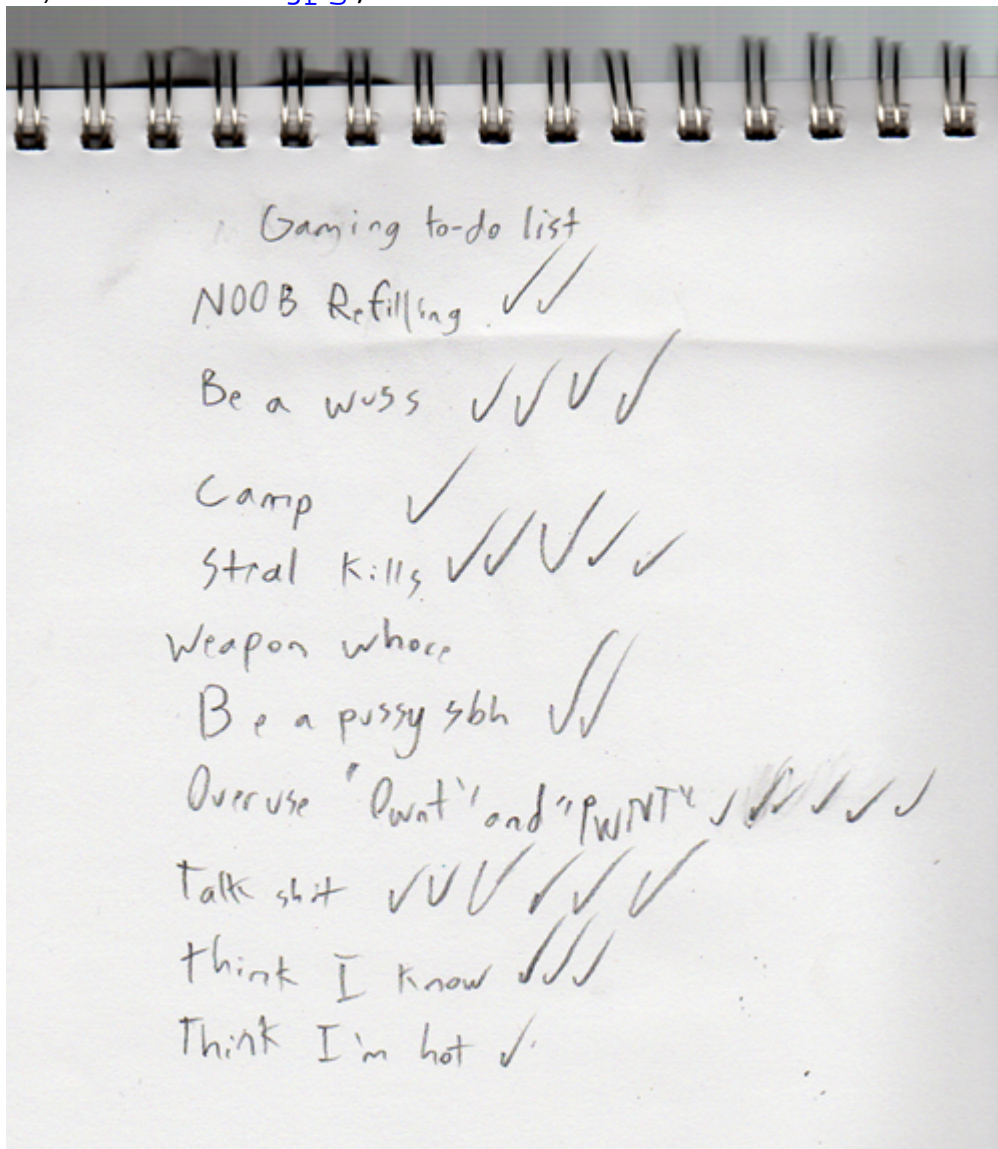 Gaming to-do list
NOOB Refilling ✓✓
Be a wuss ✓✓✓✓
Camp ✓
Steal Kills ✓✓✓✓✓
Weapon whore
Be a pussy sbh ✓✓
Overuse "Pwnt" and "PWNT" ✓✓✓✓✓✓
Talk shit ✓✓✓✓✓✓
think I know ✓✓✓
Think I'm hot ✓